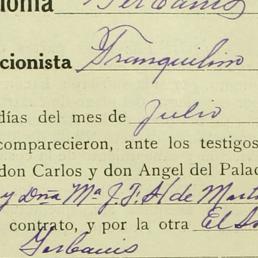 cionista Tranquilino
días del mes de Julio
comparecieron, ante los testigos
don Carlos y don Angel del Palac
y Dña Mª J. F. A/ de Mart
contrato, y por la otra El S